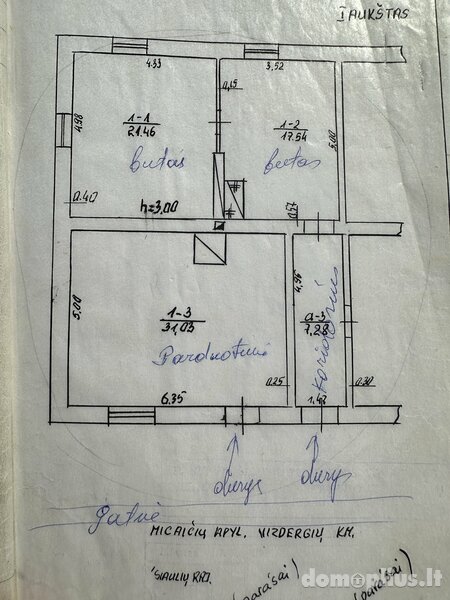 I AUKŠTAS
4.33
3,52
0,15
4,98
1-1
21.46
1-2
17.54
5,00
butas
butas
0.40
h=3,00
0,57
5,00
4,96
1-3
31,03
a-3
7,28
Parduotuvė
koridorius
0.25
0.30
6.35
1,47
durys
durys
Gatvė
MICAIČIŲ APYL. VIZDERGIŲ KM.
ŠIAULIŲ RAJ.
(parašai)
(parašai)
domoplius.lt